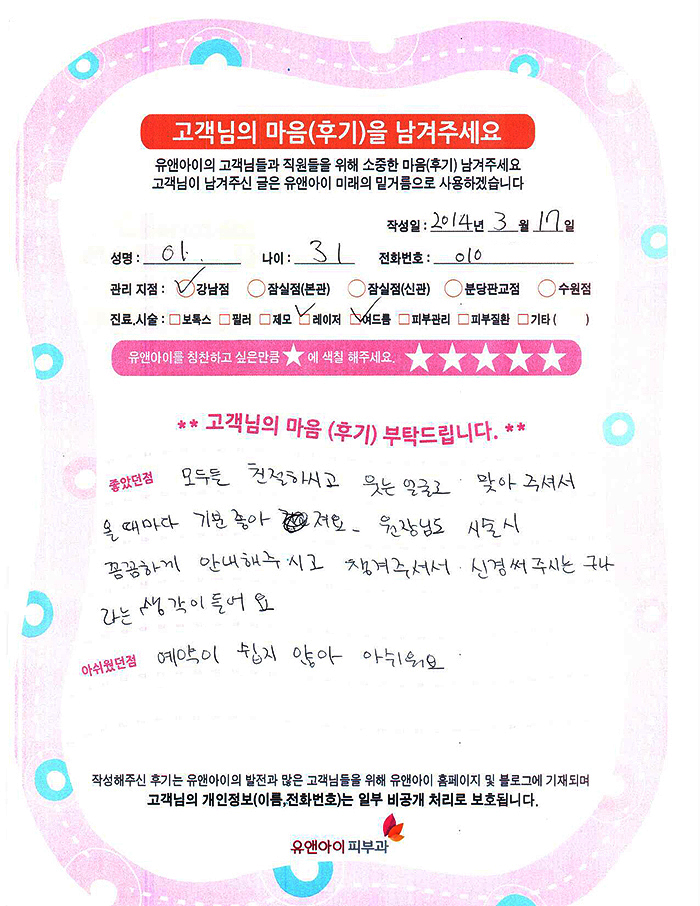 고객님의 마음(후기)을 남겨주세요
유앤아이의 고객님들과 직원들을 위해 소중한 마음(후기) 남겨주세요
고객님이 남겨주신 글은 유앤아이 미래의 밑거름으로 사용하겠습니다
작성일 : 2014년 3 월 17 일
성명 : 이. 나이 : 31 전화번호 : 010
관리 지점 : 강남점 잠실점(본관) 잠실점(신관) 분당판교점 수원점
진료.시술 : 보톡스 필러 제모 레이저 여드름 피부관리 피부질환 기타 ( )
유앤아이를 칭찬하고 싶은만큼 ★ 에 색칠 해주세요. ★★★★★
** 고객님의 마음 (후기) 부탁드립니다. **
좋았던점 모두들 친절하시고 웃는 얼굴로 맞아 주셔서
올 때마다 기분 좋아 져요. 원장님도 시술시
꼼꼼하게 안내해주시고 챙겨주셔서 신경써 주시는 구나
라는 생각이 들어 요
아쉬웠던점 예약이 쉽지 않아 아쉬워요
작성해주신 후기는 유앤아이의 발전과 많은 고객님들을 위해 유앤아이 홈페이지 및 블로그에 기재되며
고객님의 개인정보(이름,전화번호)는 일부 비공개 처리로 보호됩니다.
유앤아이피부과